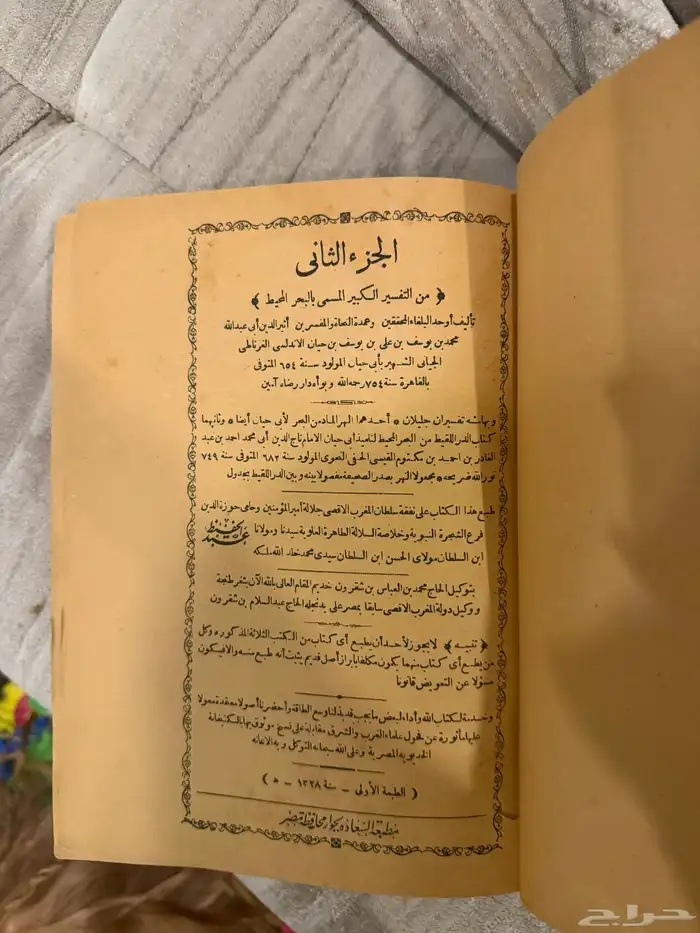 الجزء الثانى
﴿ من التفسير الكبير المسمى بالبحر المحيط ﴾
تأليف أوحد البلغاء المحققين وعمدة النحاة والمفسرين أثير الدين أبى عبد الله
محمد بن يوسف بن على بن يوسف بن حيان الاندلسى الغرناطى
الجيانى الشهير بأبى حيان المولود سنة ٦٥٤ المتوفى
بالقاهرة سنة ٧٥٤ رحمه الله وبوأه دار رضاه آمين
وبهامشه تفسيران جليلان * أحدهما النهر الماد من البحر لأبى حيان أيضا * وثانيهما
كتاب الدر اللقيط من البحر المحيط لتلميذ أبى حيان الامام تاج الدين أبى محمد احمد بن عبد
القادر بن احمد بن مكتوم القيسى الحنفى النحوى المولود سنة ٦٨٢ المتوفى سنة ٧٤٩
نور الله ضريحه * مجعولا النهر بصدر الصحيفة مفصولا بينه وبين الدر اللقيط بجدول
طبع هذا الكتاب على نفقة سلطان المغرب الاقصى جلالة أمير المؤمنين وحامى حوزة الدين
فرع الشجرة النبوية وخلاصة السلالة الطاهرة العلوية سيدنا ومولانا عبد الحفيظ
ابن السلطان مولاى الحسن ابن السلطان سيدى محمد خلد الله ملكه
بتوكيل الحاج محمد بن العباس بن شقرون خديم المقام العالى بالله الآن بثغر طنجة
ووكيل دولة المغرب الاقصى سابقا بمصر على يد نجله الحاج عبد السلام بن شقرون
﴿ تنبيه ﴾ لا يجوز لأحد أن يطبع أى كتاب من الكتب الثلاثة المذكورة وكل
من يطبع أى كتاب منها يكون مكلفا بابراز أصل قديم يثبت أنه طبع منه والا فيكون
مسؤلا عن التعويض قانونا
وخدمة لكتاب الله وأداء لبعض ما يجب قد بذلنا وسع الطاقة وأحضرنا أصولا معتمدة معولا
عليها مأثورة عن فحول علماء الغرب والشرق مقابلة على نسخ موثوق بها بالكتبخانة
الخديوية المصرية وعلى الله سبحانه التوكل وبه الاعانة
( الطبعة الأولى – سنة ١٣٢٨ – ه )
مطبعة السعادة بجوار محافظة مصر
حراج